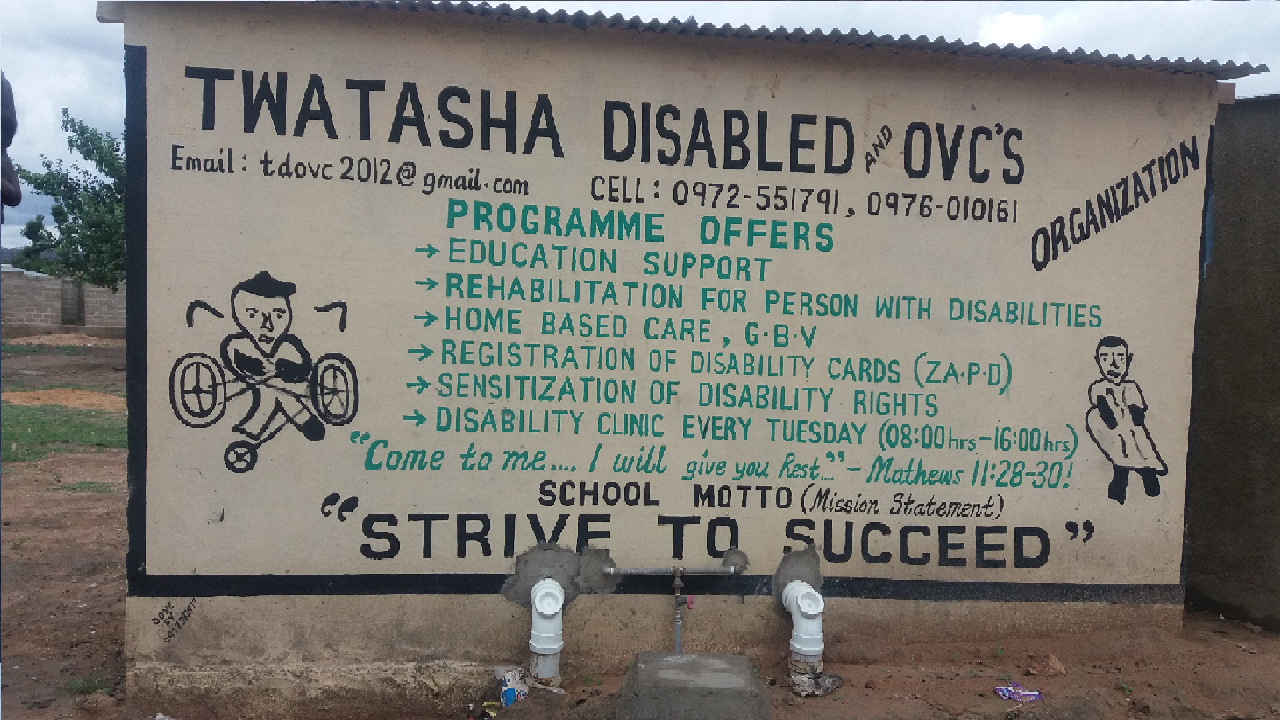 TWATASHA DISABLED AND OVC'S
ORGANIZATION
Email: tdovc2012@gmail.com CELL: 0972-551791, 0976-010161
PROGRAMME OFFERS
→ EDUCATION SUPPORT
→ REHABILITATION FOR PERSON WITH DISABILITIES
→ HOME BASED CARE, G.B.V
→ REGISTRATION OF DISABILITY CARDS (ZA.P.D)
→ SENSITIZATION OF DISABILITY RIGHTS
→ DISABILITY CLINIC EVERY TUESDAY (08:00hrs-16:00hrs)
"Come to me.... I will give you Rest..." - Mathews 11:28-30!
SCHOOL MOTTO (Mission Statement)
"STRIVE TO SUCCEED"
DONE
BY